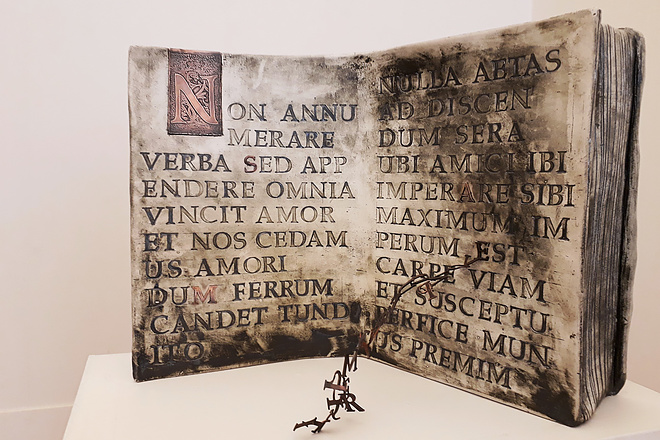 NON ANNU
MERARE
VERBA SED APP
ENDERE OMNIA
VINCIT AMOR
ET NOS CEDAM
US AMORI
DUM FERRUM
CANDET TUND
ITO
NULLA AETAS
AD DISCEN
DUM SERA
UBI AMICI IBI
IMPERARE SIBI
MAXIMUM IM
PERUM EST
CARPE VIAM
ET SUSCEPTU
PERFICE MUN
US PREMIM